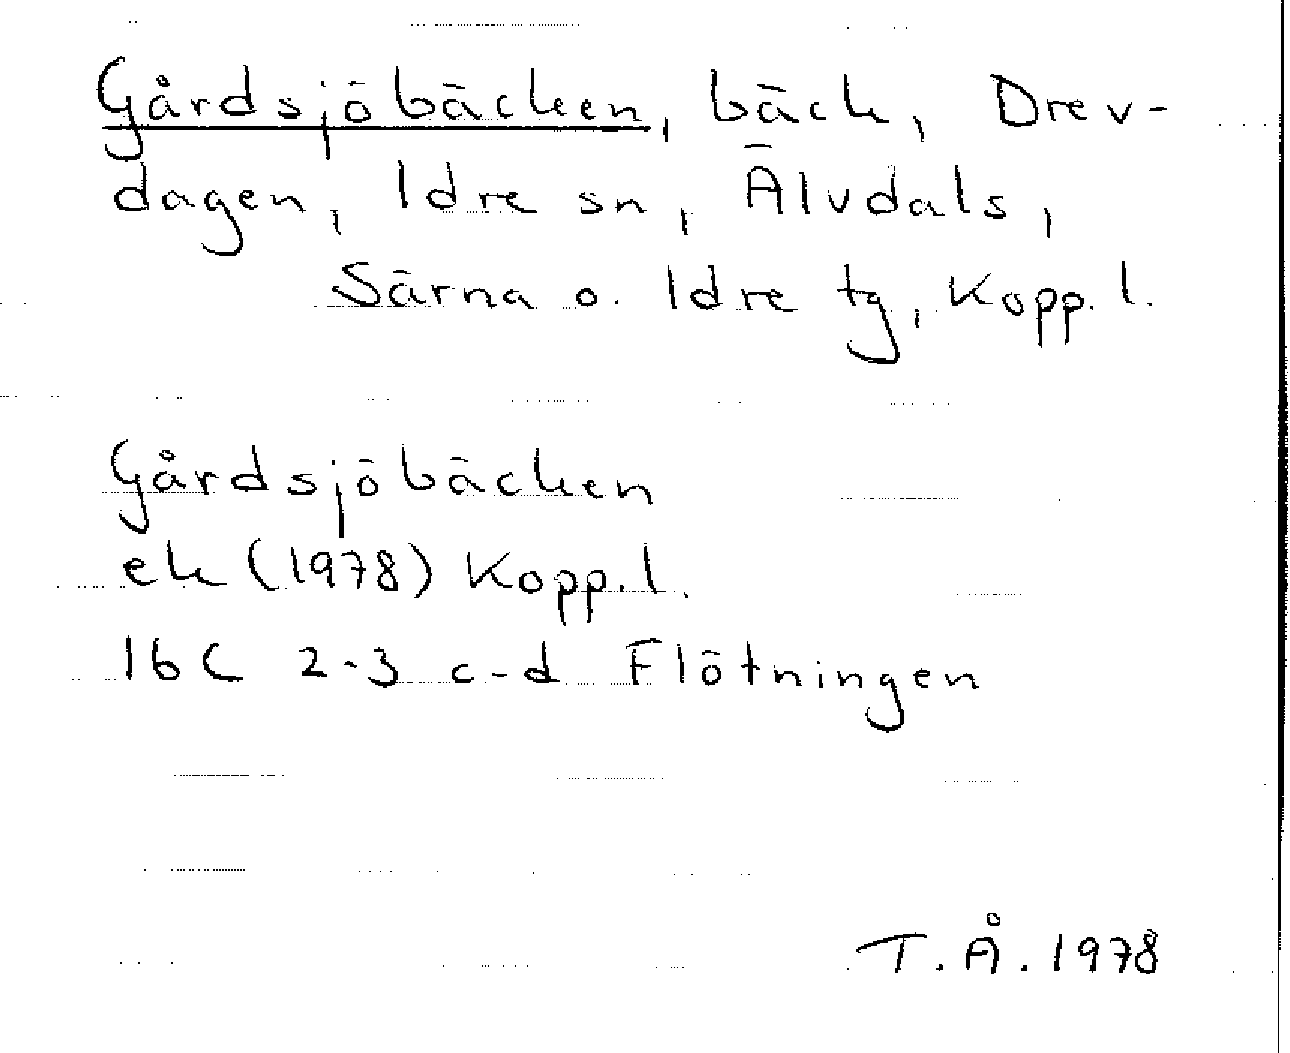 Gårdsjöbäcken, bäck, Drev-
dagen, Idre sn, Älvdals,
Särna o. Idre tg, Kopp. l.
Gårdsjöbäcken
ek (1978) Kopp. l.
16C 2-3 c-d Flötningen
T. Å. 1978